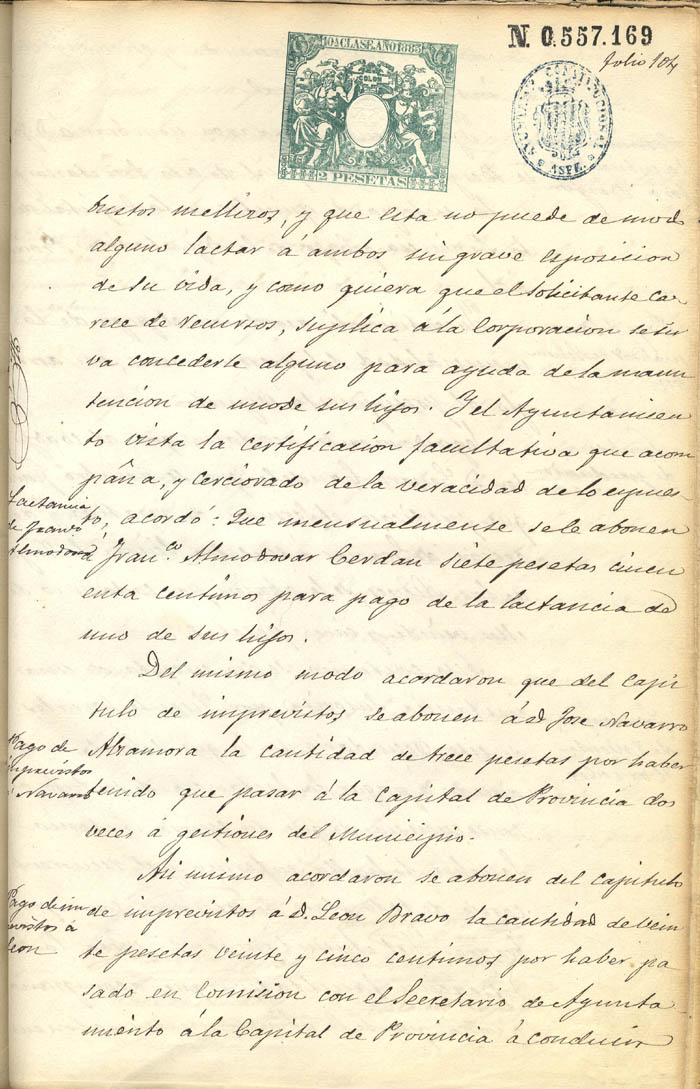 10ª CLASE. AÑO 1883
COLON
2 PESETAS
N. 0.557.169
folio 104
AYUNTAMTO CONSTITUCIONAL
ASPE.
tustos mellizos, y que esta no puede de modo
alguno lactar á ambos sin grave esposicion
de su vida, y como quiera que el solicitante ca-
rece de recursos, suplica á la Corporacion se sir
va concederle alguno para ayuda de la manu
tencion de uno de sus hijos. Y el Ayuntamien
to vista la certificacion facultativa que acom
paña, y cerciorado de la veracidad de lo espues
to, acordó: Que mensualmente se le abonen
á Franco Almodovar Cerdan siete pesetas cincu
enta centimos para pago de la lactancia de
uno de sus hijos.
Lactancia
de Franco
Almodovar
Del mismo modo acordaron que del Capi
tulo de imprevistos se abonen á D. Jose Navarro
Alzamora la cantidad de trece pesetas por haber
tenido que pasar á la Capital de Provincia dos
veces á gestiones del Municipio.
Pago de
imprevistos
á Navarro
Asi mismo acordaron se abonen del Capitulo
de imprevistos á D. Leon Bravo la cantidad de vein
te pesetas veinte y cinco centimos, por haber pa
sado en Comision con el Secretario de Ayunta
miento á la Capital de Provincia á conducir
Pago de im
previstos á
Leon